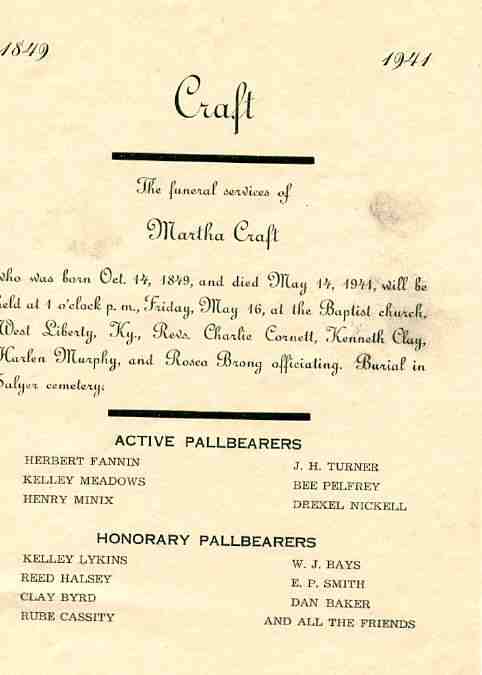 1849 1941
Craft
The funeral services of
Martha Craft
who was born Oct. 14, 1849, and died May 14, 1941, will be
held at 1 o'clock p. m., Friday, May 16, at the Baptist church,
West Liberty, Ky., Revs. Charlie Cornett, Kenneth Clay,
Harlen Murphy, and Rosco Brong officiating. Burial in
Salyer cemetery.
ACTIVE PALLBEARERS
HERBERT FANNIN J. H. TURNER
KELLEY MEADOWS BEE PELFREY
HENRY MINIX DREXEL NICKELL
HONORARY PALLBEARERS
KELLEY LYKINS W. J. BAYS
REED HALSEY E. P. SMITH
CLAY BYRD DAN BAKER
RUBE CASSITY AND ALL THE FRIENDS